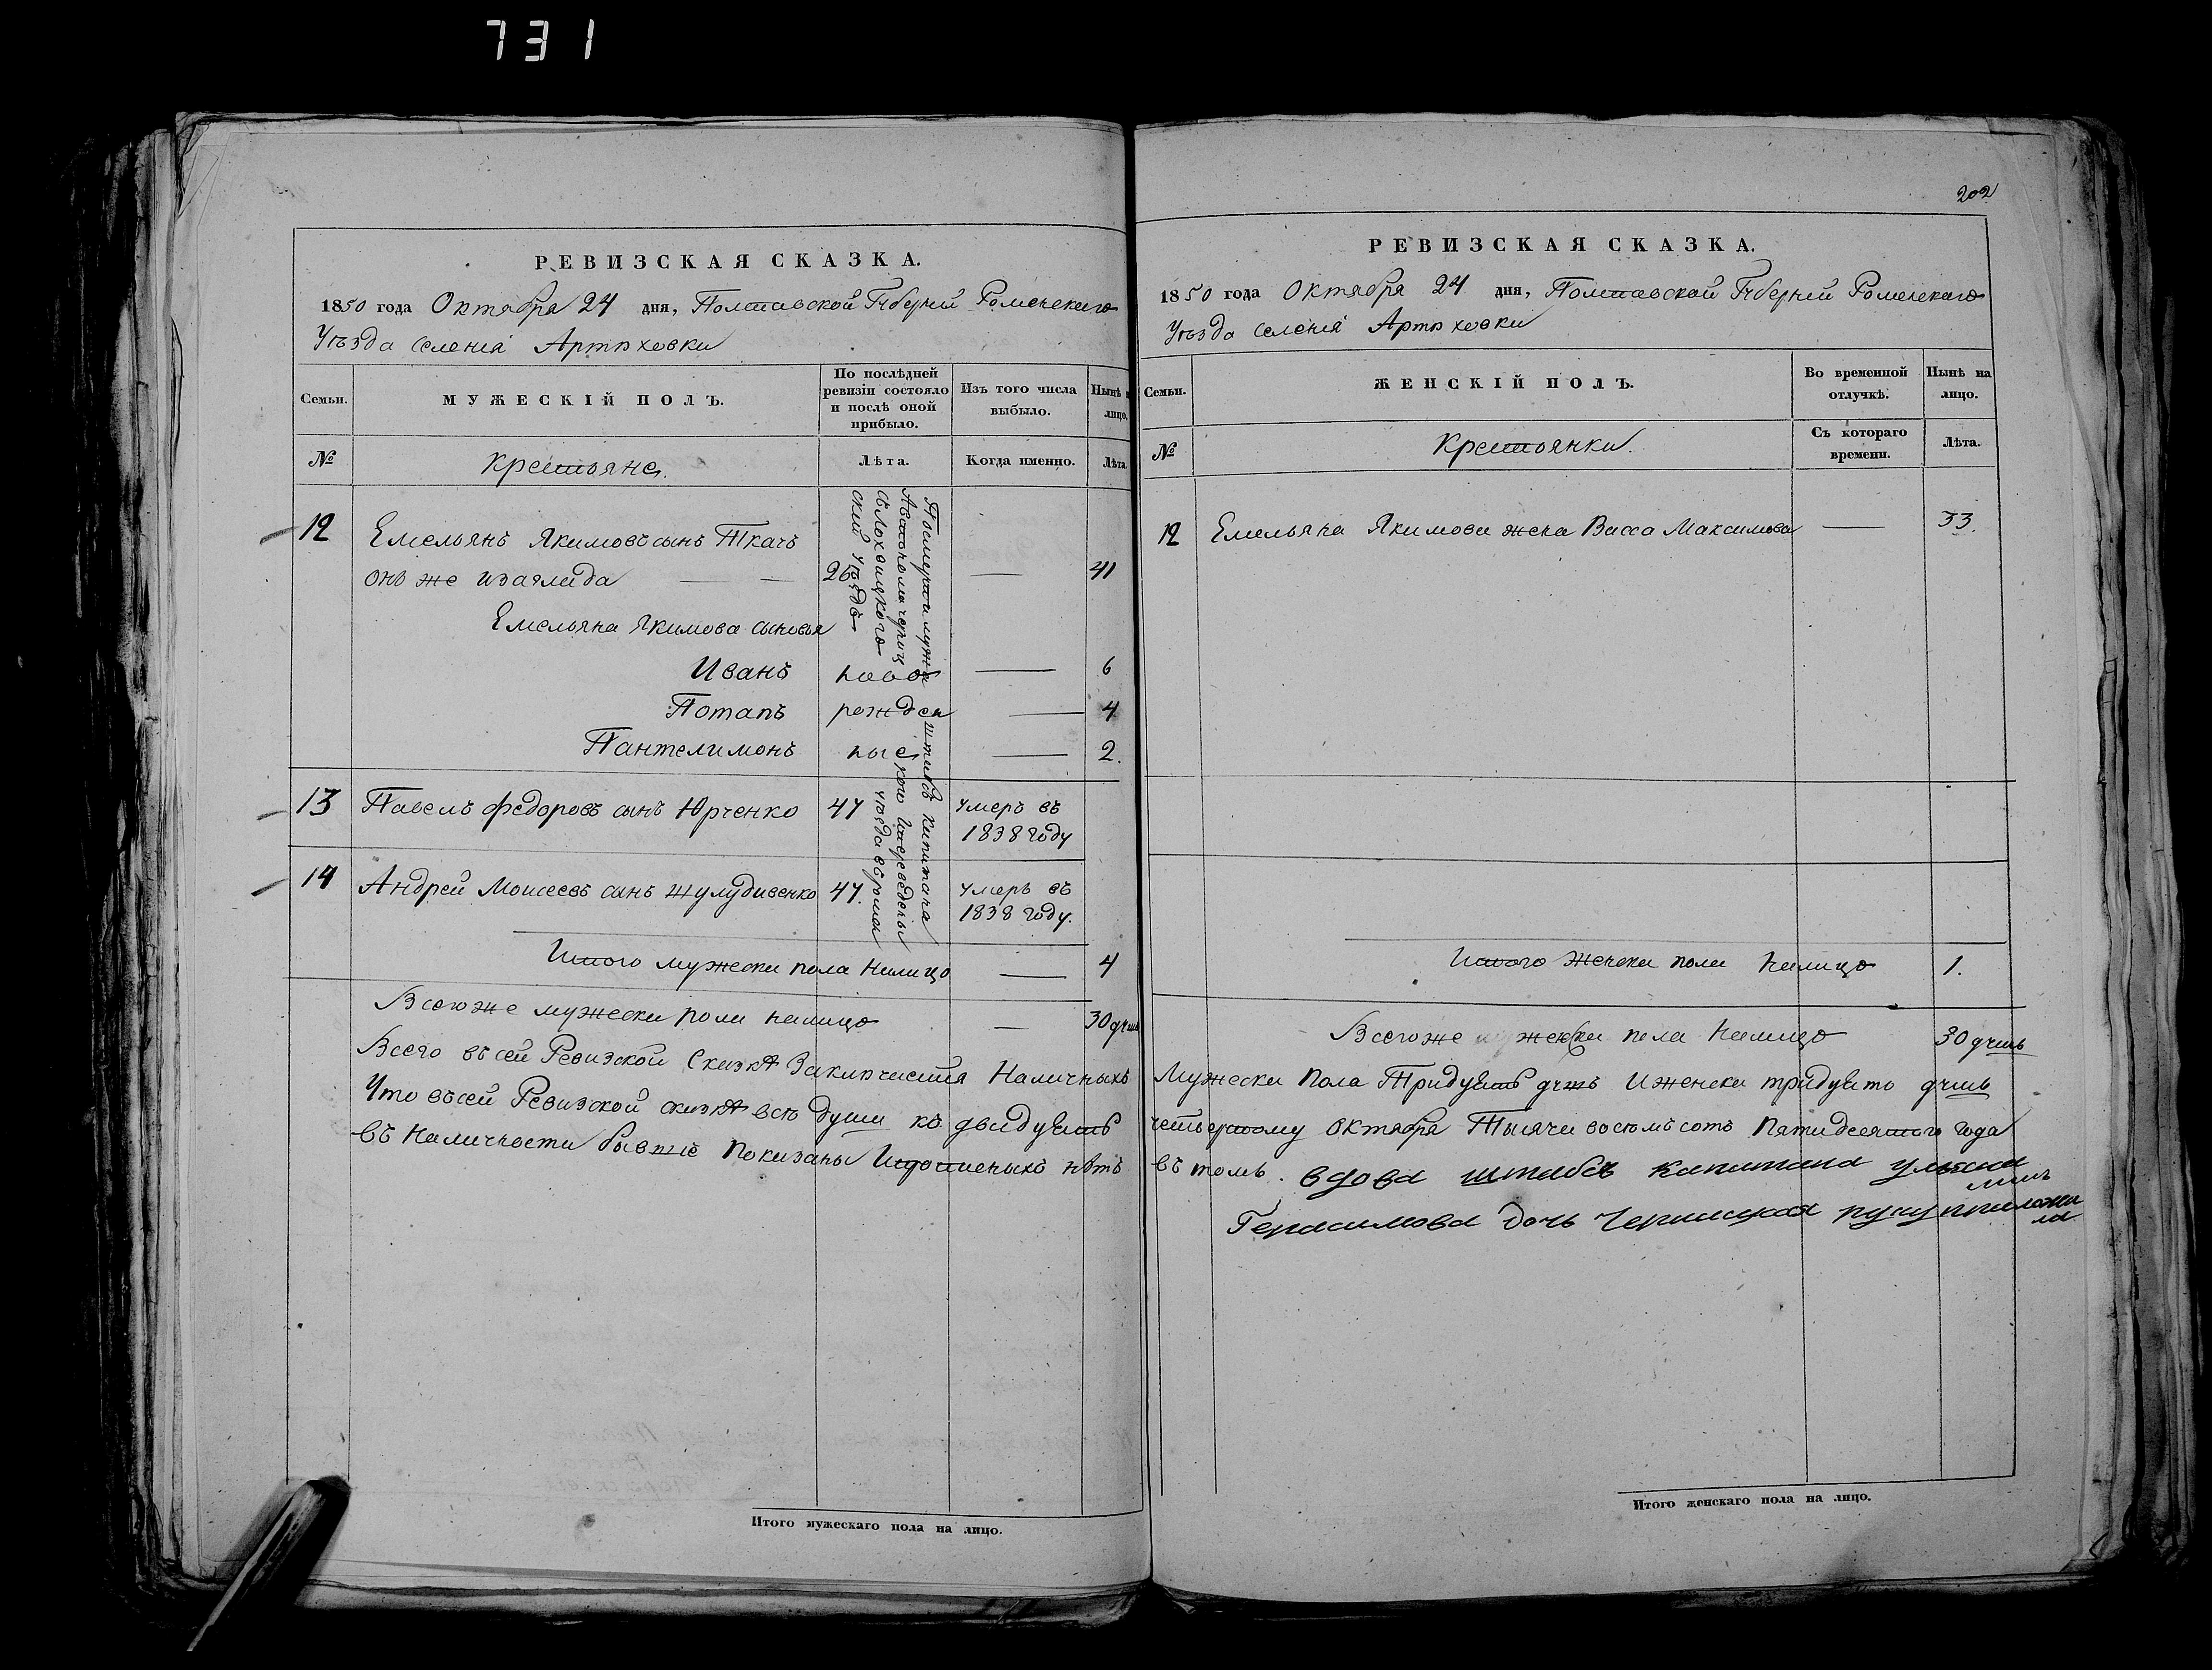 731
РЕВИЗСКАЯ СКАЗКА.
1850 года Октября 24 дня, Полтавской Губерніи Роменскаго
Уѣзда селенія Артюховки
Семьи.
МУЖЕСКІЙ ПОЛЪ.
По послѣдней ревизіи состояло и послѣ оной прибыло.
Изъ того числа выбыло.
Нынѣ на лицо.
№
Крестьяне.
Лѣта.
Когда именно.
Лѣта.
12 Емельянъ Якимовъ сынъ Ткачъ
онъ же 26 — 41
Емельяна Якимова сыновья
Иванъ ново — 6
Потапъ рожден — 4
Пантелимонъ ные — 2.
По смерти мужа штабсъ капитана
переведены
уѣзда в ромен
ский уѣздъ
13 Павелъ Федоровъ сынъ Юрченко 47 умеръ въ
1838 году
14 Андрей Моисеевъ сынъ Шулудивенко 47. умеръ въ
1838 году.
Итого мужеска пола налицо — 4
Всего же мужеска пола налицо — 30 душъ
Всего въ сей Ревизской Сказкѣ Заключается Наличныхъ
Что въ сей Ревизской сказкѣ всѣ души къ двадцать
въ Наличности бывшіе показаны И прописныхъ нѣтъ
Итого мужескаго пола на лицо.
202
РЕВИЗСКАЯ СКАЗКА.
1850 года Октября 24 дня, Полтавской Губерніи Роменскаго
Уѣзда селенія Артюховки
Семьи.
ЖЕНСКІЙ ПОЛЪ.
Во временной отлучкѣ.
Нынѣ на лицо.
№
Крестьянки.
Съ котораго времени.
Лѣта.
12 Емельяна Якимова жена Васса Максимова — 33.
Итого Женска пола налицо 1.
Всего же женска пола налицо 30 душъ
Мужеска пола Тридцать душъ И женска тридцать душъ
четвертому Октября Тысяча восемь сотъ Пятидесятого года
въ томъ. вдова штабсъ капитана
Герасимова дочь Черницкая руку приложи
ла
Итого женскаго пола на лицо.